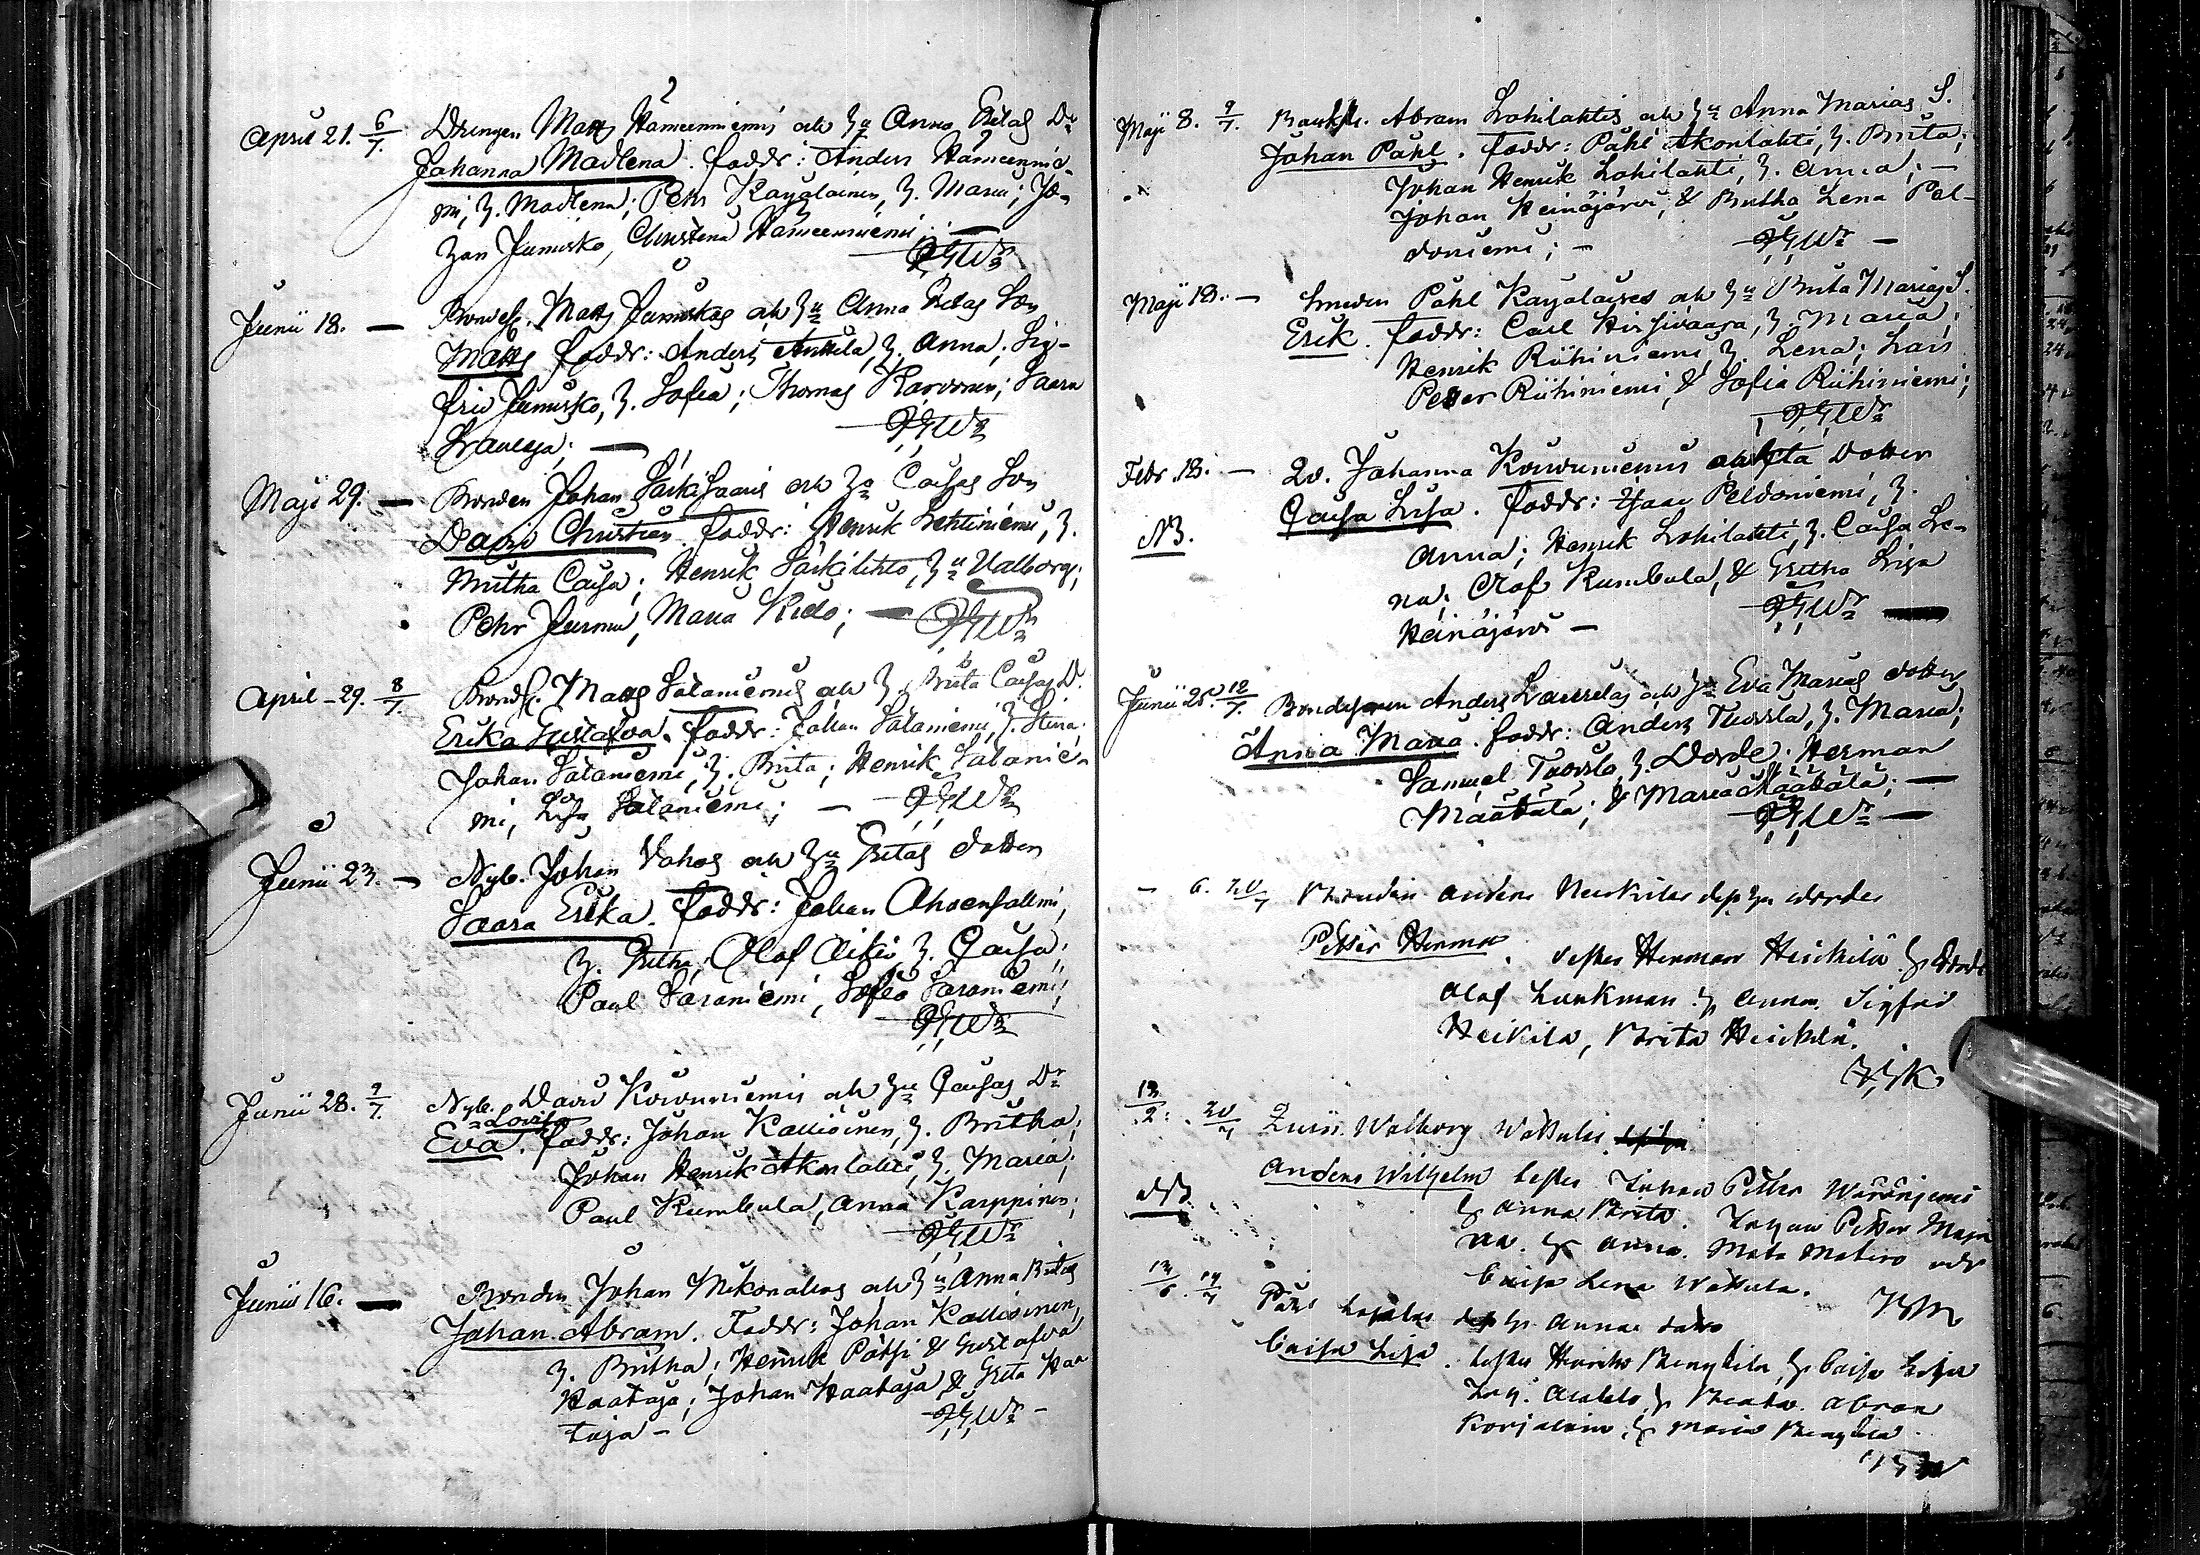 April 21. 6/7. Drengen Matts Hämeenniemis och h:u Anna Gretas Dr
Johanna Madlena. Faddr: Anders Hämeennie-
mi, h. Madlena; Petr Karjalainen, h. Maria; Jo-
han Jumisko, Christina Hämeenniemi; —
Junii 18. — Bondes. Matts Jumiskos och h:u Anna Gretas Son
Matts Faddr: Anders Anttila, h. Anna; Sig-
frid Jumisko, h. Sofia; Thomas Karvonen; Saara
Maji 29. — Bonden Johan Särkisaaris och h:u Caisas Son
David Christian. Faddr: Henrik Lehtiniemi, h.
Britha Caisa; Henrik Särkilehto, h:u Valborg;
Pehr Jurmu, Maria Kido; —
April — 29. 8/7. Bondes. Matts Sätäniemis och h. Brita Caisas D.
Erika Gustafva. Faddr: Johan Sätäniemi, h. Stina;
Johan Sätäniemi, h. Brita; Henrik Sätänie-
mi, Lisa Sätäniemi; —
Junii 23. — Nyb. Johan Vahos och h:u Gretas dotter
Saara Erika. Faddr: Johan Ahoensallmi,
h. Gretha; Olof Aikio, h. Caisa;
Paul Säräniemi, Sofia Säräniemi;
Junii 28. 9/7. Nyb. David Kouvuniemis och h:u Caisas Dr
Lovisa
Eva. Faddr: Johan Kallioinen, h. Britha;
Johan Henrik Akonlahti, h. Maria;
Paul Kumbula, Anna Karppinen;
Junii 16. — Bonden Johan Mikonahos och h:u Anna Britas
Johan Abram. Faddr: Johan Kallioinen,
h. Britha; Henrik Pätsi & Gustafva
Haataja; Johan Haataja & Greta Haa-
taja —
Maji 8. 9/7. Abram Lohilahtis och h:u Anna Marias S.
Johan Påhl. Faddr: Påhl Akonlahti, h. Brita;
Johan Henrik Lohilahti, h. Anna; —
Johan Heinäjärvi, & Britha Lena Pel-
doniemi; —
Maji 18. — Smeden Påhl Karjalaines och h:u Brita Marias S.
Erik. Faddr: Carl Hirsivaara, h. Maria;
Henrik Riihiniemi, h. Lena; Lars
Petter Riihiniemi, & Sofia Riihiniemi;
Febr. 18. — Qv. Johanna Kouvuniemis oächta dotter
NB. Caisa Lisa. Faddr: Isaac Peldoniemi, h.
Anna; Henrik Lohilahti, h. Caisa Le-
na; Olof Kumbula, & Gretha Lisa
Heinäjärvi —
Junii 25. 12/7. Bondesonen Anders Laurilas och h:u Eva Marias dotter
Anna Maria. Faddr: Anders Tuovila, h. Maria;
Samuel Tuovila, h. Dorde; Herman
Määttälä; & Maria Määttälä; —
— 6. 20/7 Bonden Anders Heikilas h:u Wordes
Petter Herman. testes Herman Heickilä
Olof Lunkman h. Anna. Sigfrid
Heikila, Brita Heickilä.
13/2. 20/7 Walborg Wattula
NB. Anders Wilhelm testes Johan Petter
h. Anna Brita. Johan Petter
h. Anna. Mats
Caisa Lena Wattula.
13/6. 14/7 Påhl h. Annas
Caisa Lisa. testes Henrik h. Caisa Lisa
h. Beata. Abram
h. Maria